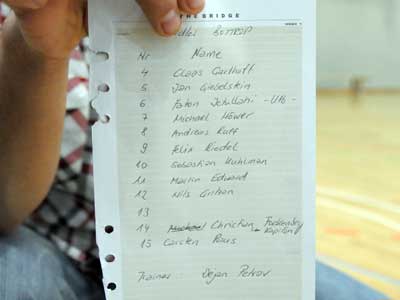 THE BRIDGE
Adler Bottrop
Nr Name
4 Claas
5 Jan Giebelstein
6 Faton Jetullahi -U16-
7 Michael Höwer
8 Andreas Ruff
9 Felix Riedel
10 Sebastian Kuhlman
11 Martin Edward
12 Nils
13
14 Michael Christian Kapitän
15 Carsten
Trainer: Dejan Petrov